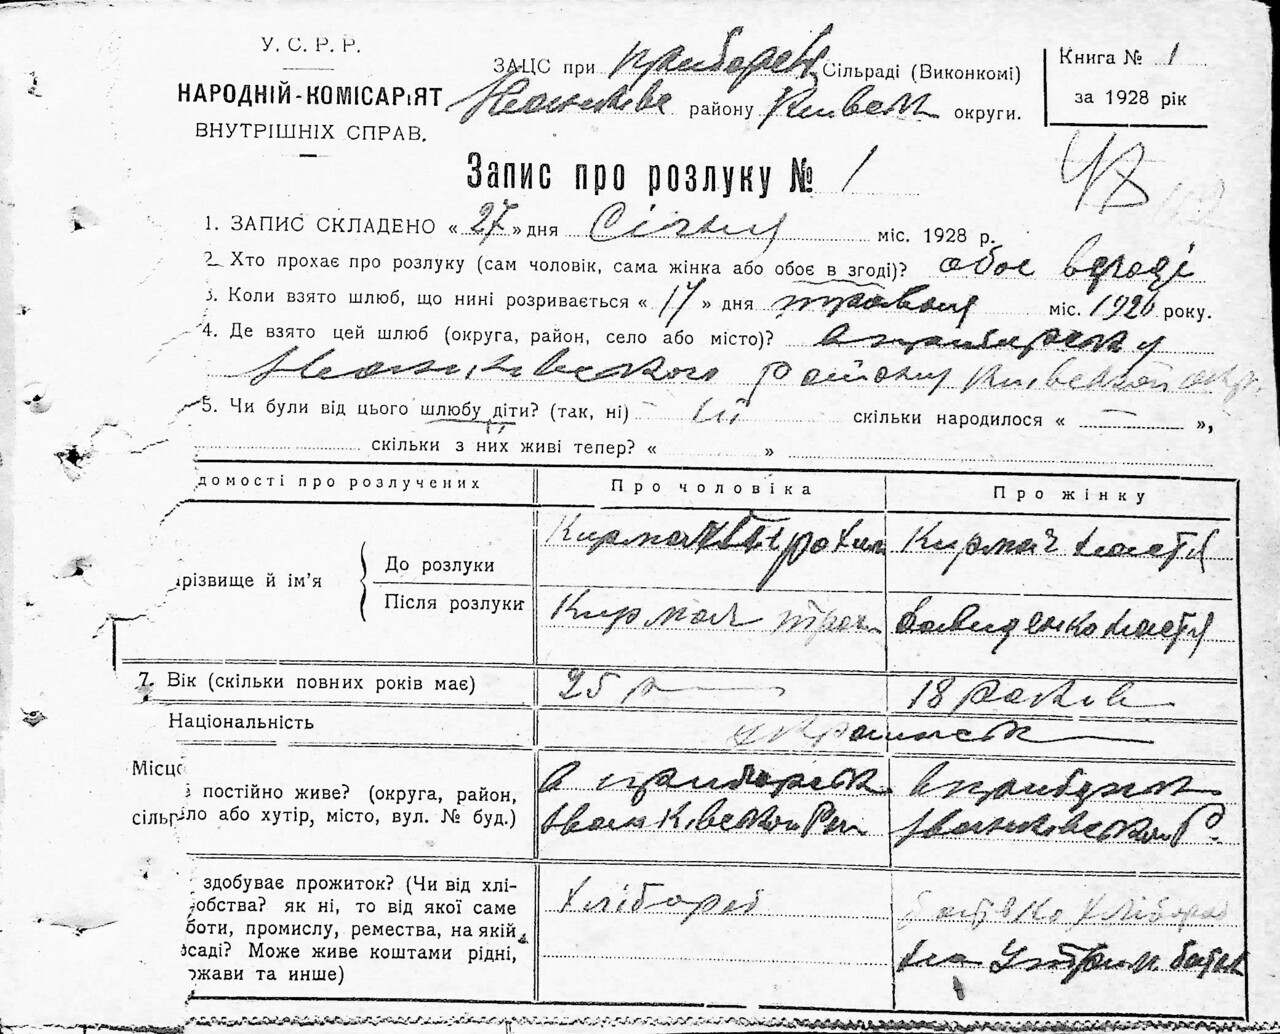 У. С. Р. Р.
НАРОДНІЙ-КОМІСАРІЯТ
ВНУТРІШНІХ СПРАВ.
ЗАЦС при Сільраді (Виконкомі)
району Київськ округи.
Книга № 1
за 1928 рік
48
Запис про розлуку № 1
1. ЗАПИС СКЛАДЕНО « 27 » дня Січня міс. 1928 р.
2. Хто прохає про розлуку (сам чоловік, сама жінка або обоє в згоді)? обоє в згоді
3. Коли взято шлюб, що нині розривається « 17 » дня травня міс. 1926 року.
4. Де взято цей шлюб (округа, район, село або місто)? в
Іванківського району Київської окр.
5. Чи були від цього шлюбу діти? (так, ні) ні скільки народилося « — »,
скільки з них живі тепер? « »
домості про розлучених
Про чоловіка
Про жінку
різвище й ім'я
До розлуки
Кирмач Кирмач Настя
Після розлуки
Кирмач Давиденко Настя
7. Вік (скільки повних років має)
25 р 18 років
Національність
українськ
Місце
постійно живе? (округа, район,
сільр ло або хутір, місто, вул. № буд.)
в в
Іванківськом Іванківськом Р.
здобуває прожиток? (Чи від хлі-
обства? як ні, то від якої саме
боти, промислу, ремества, на якій
саді? Може живе коштами рідні,
ржави та инше)
Хлібороб
батько хлібороб
на утрим батьк